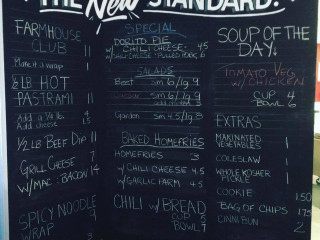 THE New STANDARD.
FARMHOUSE
CLUB 11
Make it a wrap 1
½ LB HOT
PASTRAMI 11
Add a ¼ lb 4
Add cheese
½ LB BEEF DIP 11
GRILL CHEESE 7
W/MAC & BACON 14
SPICY NOODLE
WRAP 9
SPECIAL
DORITO PIE
W/ CHILI CHEESE 4.5
SALADS
Beef sm 6/lg 9
sm 6/lg 9
Garden sm 4.5/lg 8
BAKED HOMEFRIES
HOMEFRIES 3
W/ CHILI CHEESE 4.5
W/ GARLIC PARM 4.5
CHILI W/ BREAD
CUP 5
BOWL 7
SOUP OF THE
DAY
TOMATO VEG
W/ CHICKEN
CUP 4
BOWL 6
EXTRAS
MARINATED
VEGETABLES
COLESLAW
WHOLE KOSHER
PICKLE
COOKIE 1.50
BAG OF CHIPS 1.75
CINNIBUN 2